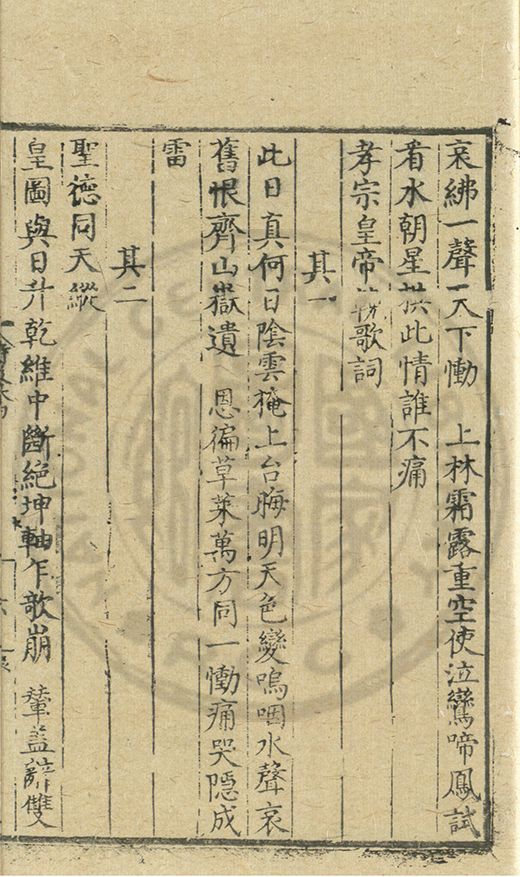 哀紼一聲天下慟　上林霜露重空使泣鸞啼鳳試
看水朝星拱此情誰不痛
孝宗皇帝輓歌詞
其一
此日真何日陰雲掩上台晦明天色變嗚咽水聲哀
舊恨齊山嶽遺　恩徧草萊萬方同一慟痛哭隱成
雷
其二
聖德同天縱
皇圖與日升乾維中斷絕坤軸乍欹崩　輦蓋辭雙